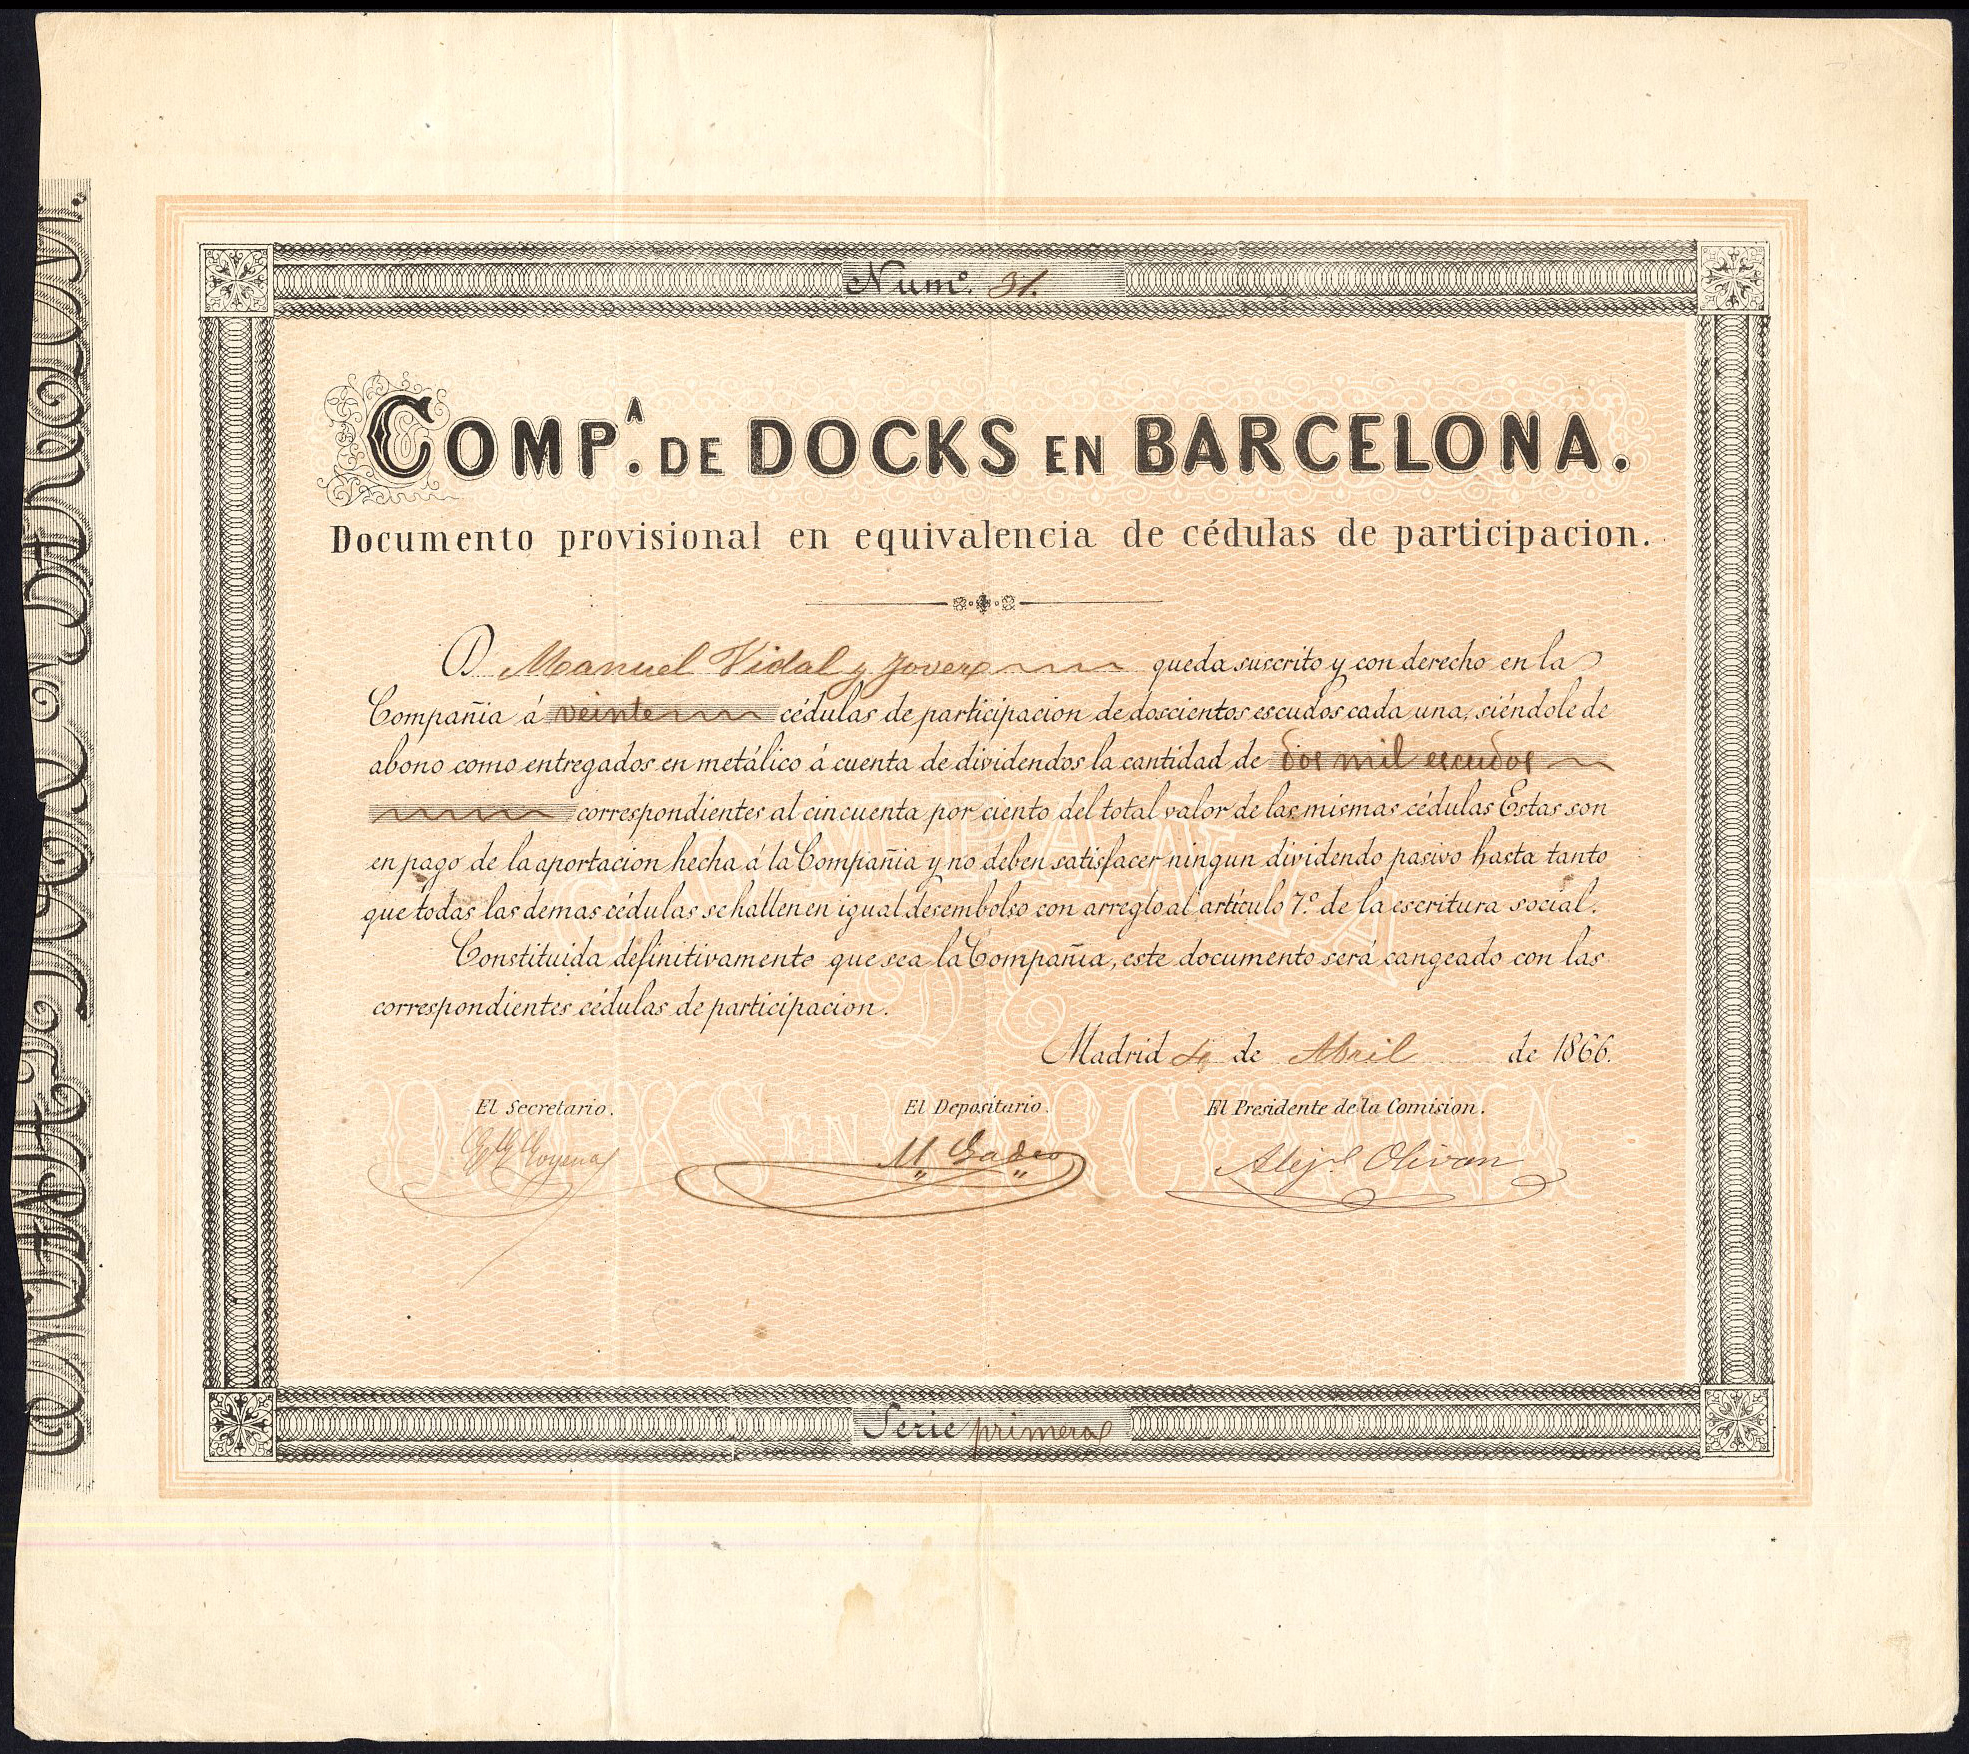 Num.º 31.
COMP.A DE DOCKS EN BARCELONA.
Documento provisional en equivalencia de cédulas de participacion.
D. Manuel Vidal y Jover queda suscrito y con derecho en la
Compañia á veinte cédulas de participacion de doscientos escudos cada una, siéndole de
abono como entregados en metálico á cuenta de dividendos la cantidad de dos mil escudos
correspondientes al cincuenta por ciento del total valor de las mismas cédulas Estas son
en pago de la aportacion hecha á la Compañia y no deben satisfacer ningun dividendo pasivo hasta tanto
que todas las demas cédulas se hallen en igual desembolso con arreglo al artículo 7.º de la escritura social.
Constituida definitivamente que sea la Compañia, este documento será cangeado con las
correspondientes cédulas de participacion.
Madrid 4 de Abril de 1866.
El Secretario. El Depositario. El Presidente de la Comision.
Goyena M. Gadeo Alej.e Olivan
COMPAÑIA
DE
DOCKS EN BARCELONA
Serie primera